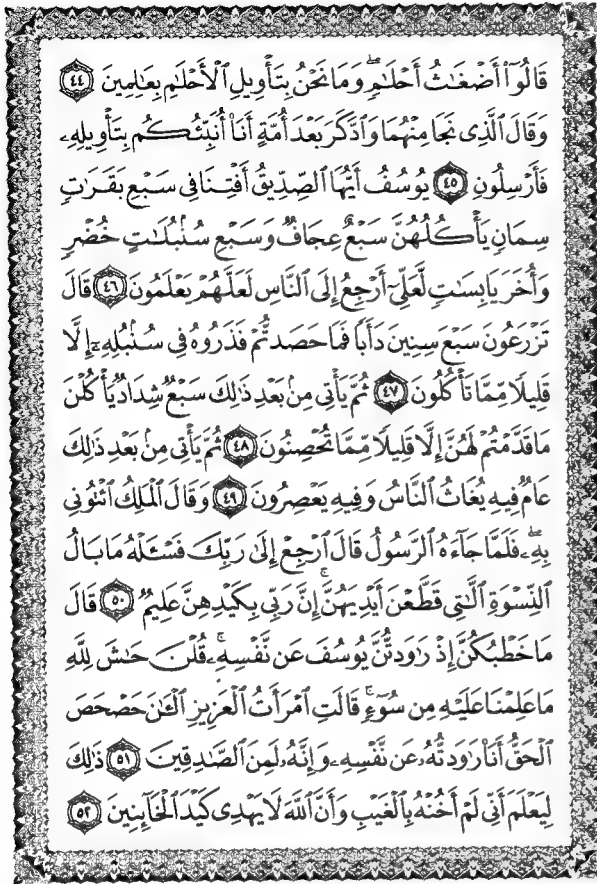 قَالُوٓاْ أَضْغَٰثُ أَحْلَٰمٍۖ وَمَا نَحْنُ بِتَأْوِيلِ ٱلْأَحْلَٰمِ بِعَٰلِمِينَ ٤٤
وَقَالَ ٱلَّذِى نَجَا مِنْهُمَا وَٱدَّكَرَ بَعْدَ أُمَّةٍ أَنَا۠ أُنَبِّئُكُم بِتَأْوِيلِهِۦ
فَأَرْسِلُونِ ٤٥ يُوسُفُ أَيُّهَا ٱلصِّدِّيقُ أَفْتِنَا فِى سَبْعِ بَقَرَٰتٍ
سِمَانٍ يَأْكُلُهُنَّ سَبْعٌ عِجَافٌ وَسَبْعِ سُنۢبُلَٰتٍ خُضْرٍ
وَأُخَرَ يَابِسَٰتٍ لَّعَلِّىٓ أَرْجِعُ إِلَى ٱلنَّاسِ لَعَلَّهُمْ يَعْلَمُونَ ٤٦ قَالَ
تَزْرَعُونَ سَبْعَ سِنِينَ دَأَبًا فَمَا حَصَدتُّمْ فَذَرُوهُ فِى سُنۢبُلِهِۦٓ إِلَّا
قَلِيلًا مِّمَّا تَأْكُلُونَ ٤٧ ثُمَّ يَأْتِى مِنۢ بَعْدِ ذَٰلِكَ سَبْعٌ شِدَادٌ يَأْكُلْنَ
مَا قَدَّمْتُمْ لَهُنَّ إِلَّا قَلِيلًا مِّمَّا تُحْصِنُونَ ٤٨ ثُمَّ يَأْتِى مِنۢ بَعْدِ ذَٰلِكَ
عَامٌ فِيهِ يُغَاثُ ٱلنَّاسُ وَفِيهِ يَعْصِرُونَ ٤٩ وَقَالَ ٱلْمَلِكُ ٱئْتُونِى
بِهِۦۖ فَلَمَّا جَآءَهُ ٱلرَّسُولُ قَالَ ٱرْجِعْ إِلَىٰ رَبِّكَ فَسْـَٔلْهُ مَا بَالُ
ٱلنِّسْوَةِ ٱلَّٰتِى قَطَّعْنَ أَيْدِيَهُنَّۚ إِنَّ رَبِّى بِكَيْدِهِنَّ عَلِيمٌ ٥٠ قَالَ
مَا خَطْبُكُنَّ إِذْ رَٰوَدتُّنَّ يُوسُفَ عَن نَّفْسِهِۦۚ قُلْنَ حَٰشَ لِلَّهِ
مَا عَلِمْنَا عَلَيْهِ مِن سُوٓءٍۚ قَالَتِ ٱمْرَأَتُ ٱلْعَزِيزِ ٱلْـَٰٔنَ حَصْحَصَ
ٱلْحَقُّ أَنَا۠ رَٰوَدتُّهُۥ عَن نَّفْسِهِۦ وَإِنَّهُۥ لَمِنَ ٱلصَّٰدِقِينَ ٥١ ذَٰلِكَ
لِيَعْلَمَ أَنِّى لَمْ أَخُنْهُ بِٱلْغَيْبِ وَأَنَّ ٱللَّهَ لَا يَهْدِى كَيْدَ ٱلْخَآئِنِينَ ٥٢